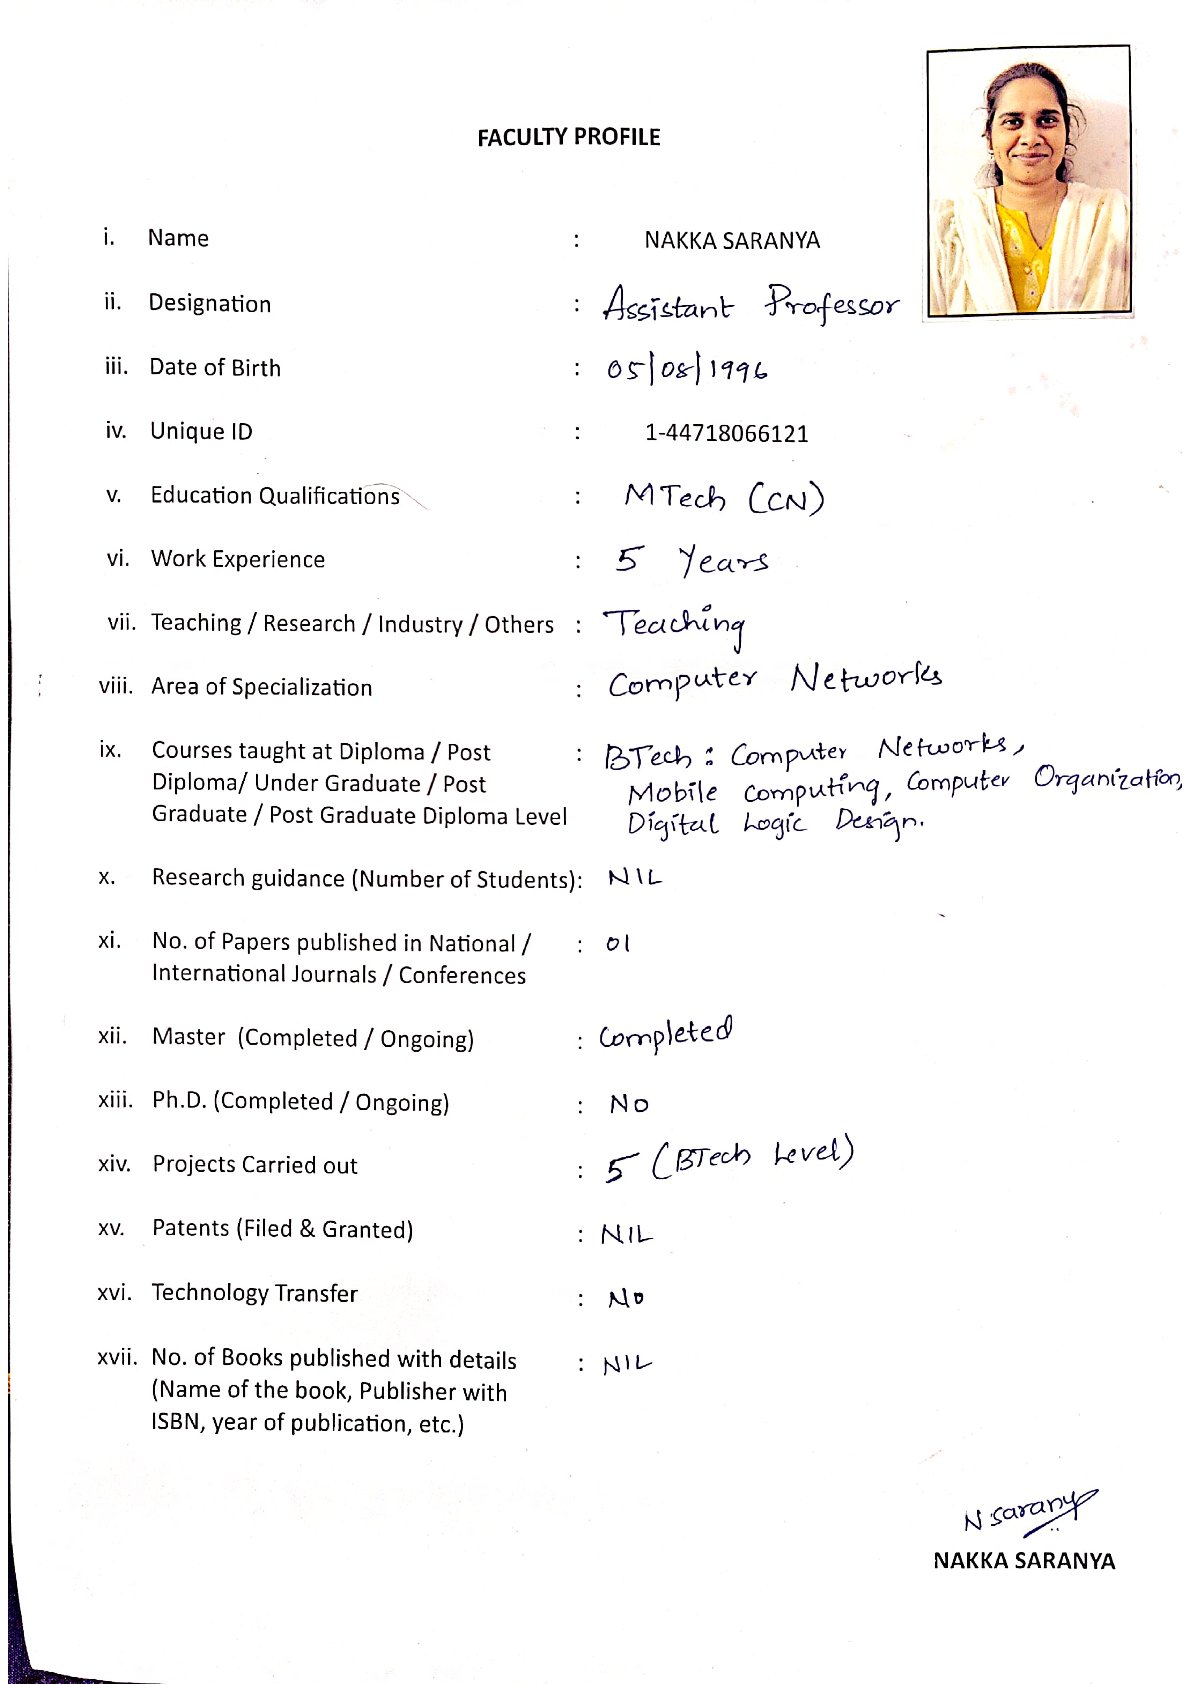 FACULTY PROFILE
i. Name : NAKKA SARANYA
ii. Designation : Assistant Professor
iii. Date of Birth : 05/08/1996
iv. Unique ID : 1-44718066121
v. Education Qualifications : MTech (CN)
vi. Work Experience : 5 Years
vii. Teaching / Research / Industry / Others : Teaching
viii. Area of Specialization : Computer Networks
ix. Courses taught at Diploma / Post : BTech : Computer Networks,
Diploma/ Under Graduate / Post Mobile Computing, Computer Organization,
Graduate / Post Graduate Diploma Level Digital Logic Design.
x. Research guidance (Number of Students): NIL
xi. No. of Papers published in National / : 01
International Journals / Conferences
xii. Master (Completed / Ongoing) : Completed
xiii. Ph.D. (Completed / Ongoing) : No
xiv. Projects Carried out : 5 (BTech Level)
xv. Patents (Filed & Granted) : NIL
xvi. Technology Transfer : No
xvii. No. of Books published with details : NIL
(Name of the book, Publisher with
ISBN, year of publication, etc.)
N Saranya
NAKKA SARANYA